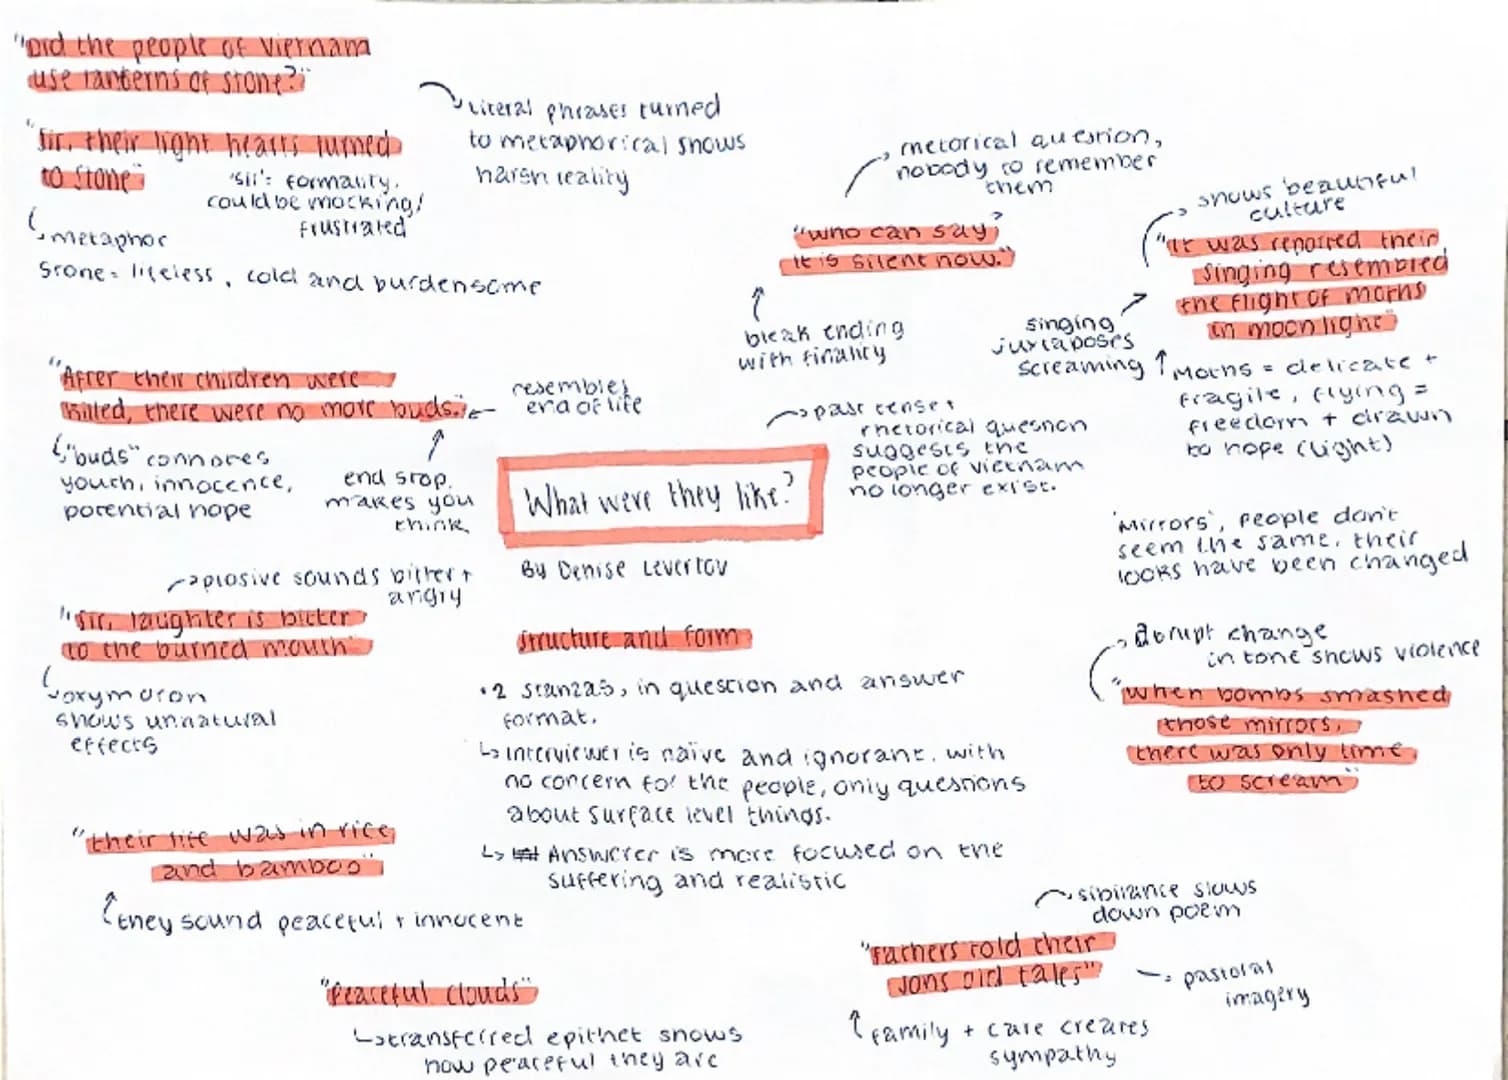 "Did the people of Vietnam
use lanterns of stone?"
Literal phrases turned
to metaphorical shows
harsh reality
"Sir, their light hearts turned
to stone"
'sir': formality,
could be mocking/
frustrated
metaphor
stone = lifeless, cold and burdensome
rhetorical question,
nobody to remember
them
"who can say?
it is silent now."
bleak ending
with finality
shows beautiful
culture
"it was reported their
singing resembled
the flight of moths
in moonlight"
singing
juxtaposes
screaming
Moths = delicate +
fragile, flying =
freedom + drawn
to hope (light)
"After their children were
killed, there were no more buds."
resembles
end of life
"buds" connotes
youth, innocence,
potential hope
end stop,
makes you
think
past tense +
rhetorical question
suggests the
people of vietnam
no longer exist.
What were they like?
By Denise Levertov
'Mirrors', people don't
seem the same, their
looks have been changed
plosive sounds bitter +
angry
"Sir, laughter is bitter
to the burned mouth"
oxymoron
shows unnatural
effects
structure and form
• 2 stanzas, in question and answer
format.
↳ interviewer is naïve and ignorant, with
no concern for the people, only questions
about surface level things.
↳ Answerer is more focused on the
suffering and realistic
Abrupt change
in tone shows violence
"when bombs smashed
those mirrors,
there was only time
to scream"
"their life was in rice
and bamboo"
they sound peaceful + innocent
"Peaceful clouds"
↳transferred epithet shows
how peaceful they are
sibilance slows
down poem
"fathers told their
sons old tales"
pastoral
imagery
family + care creates
sympathy